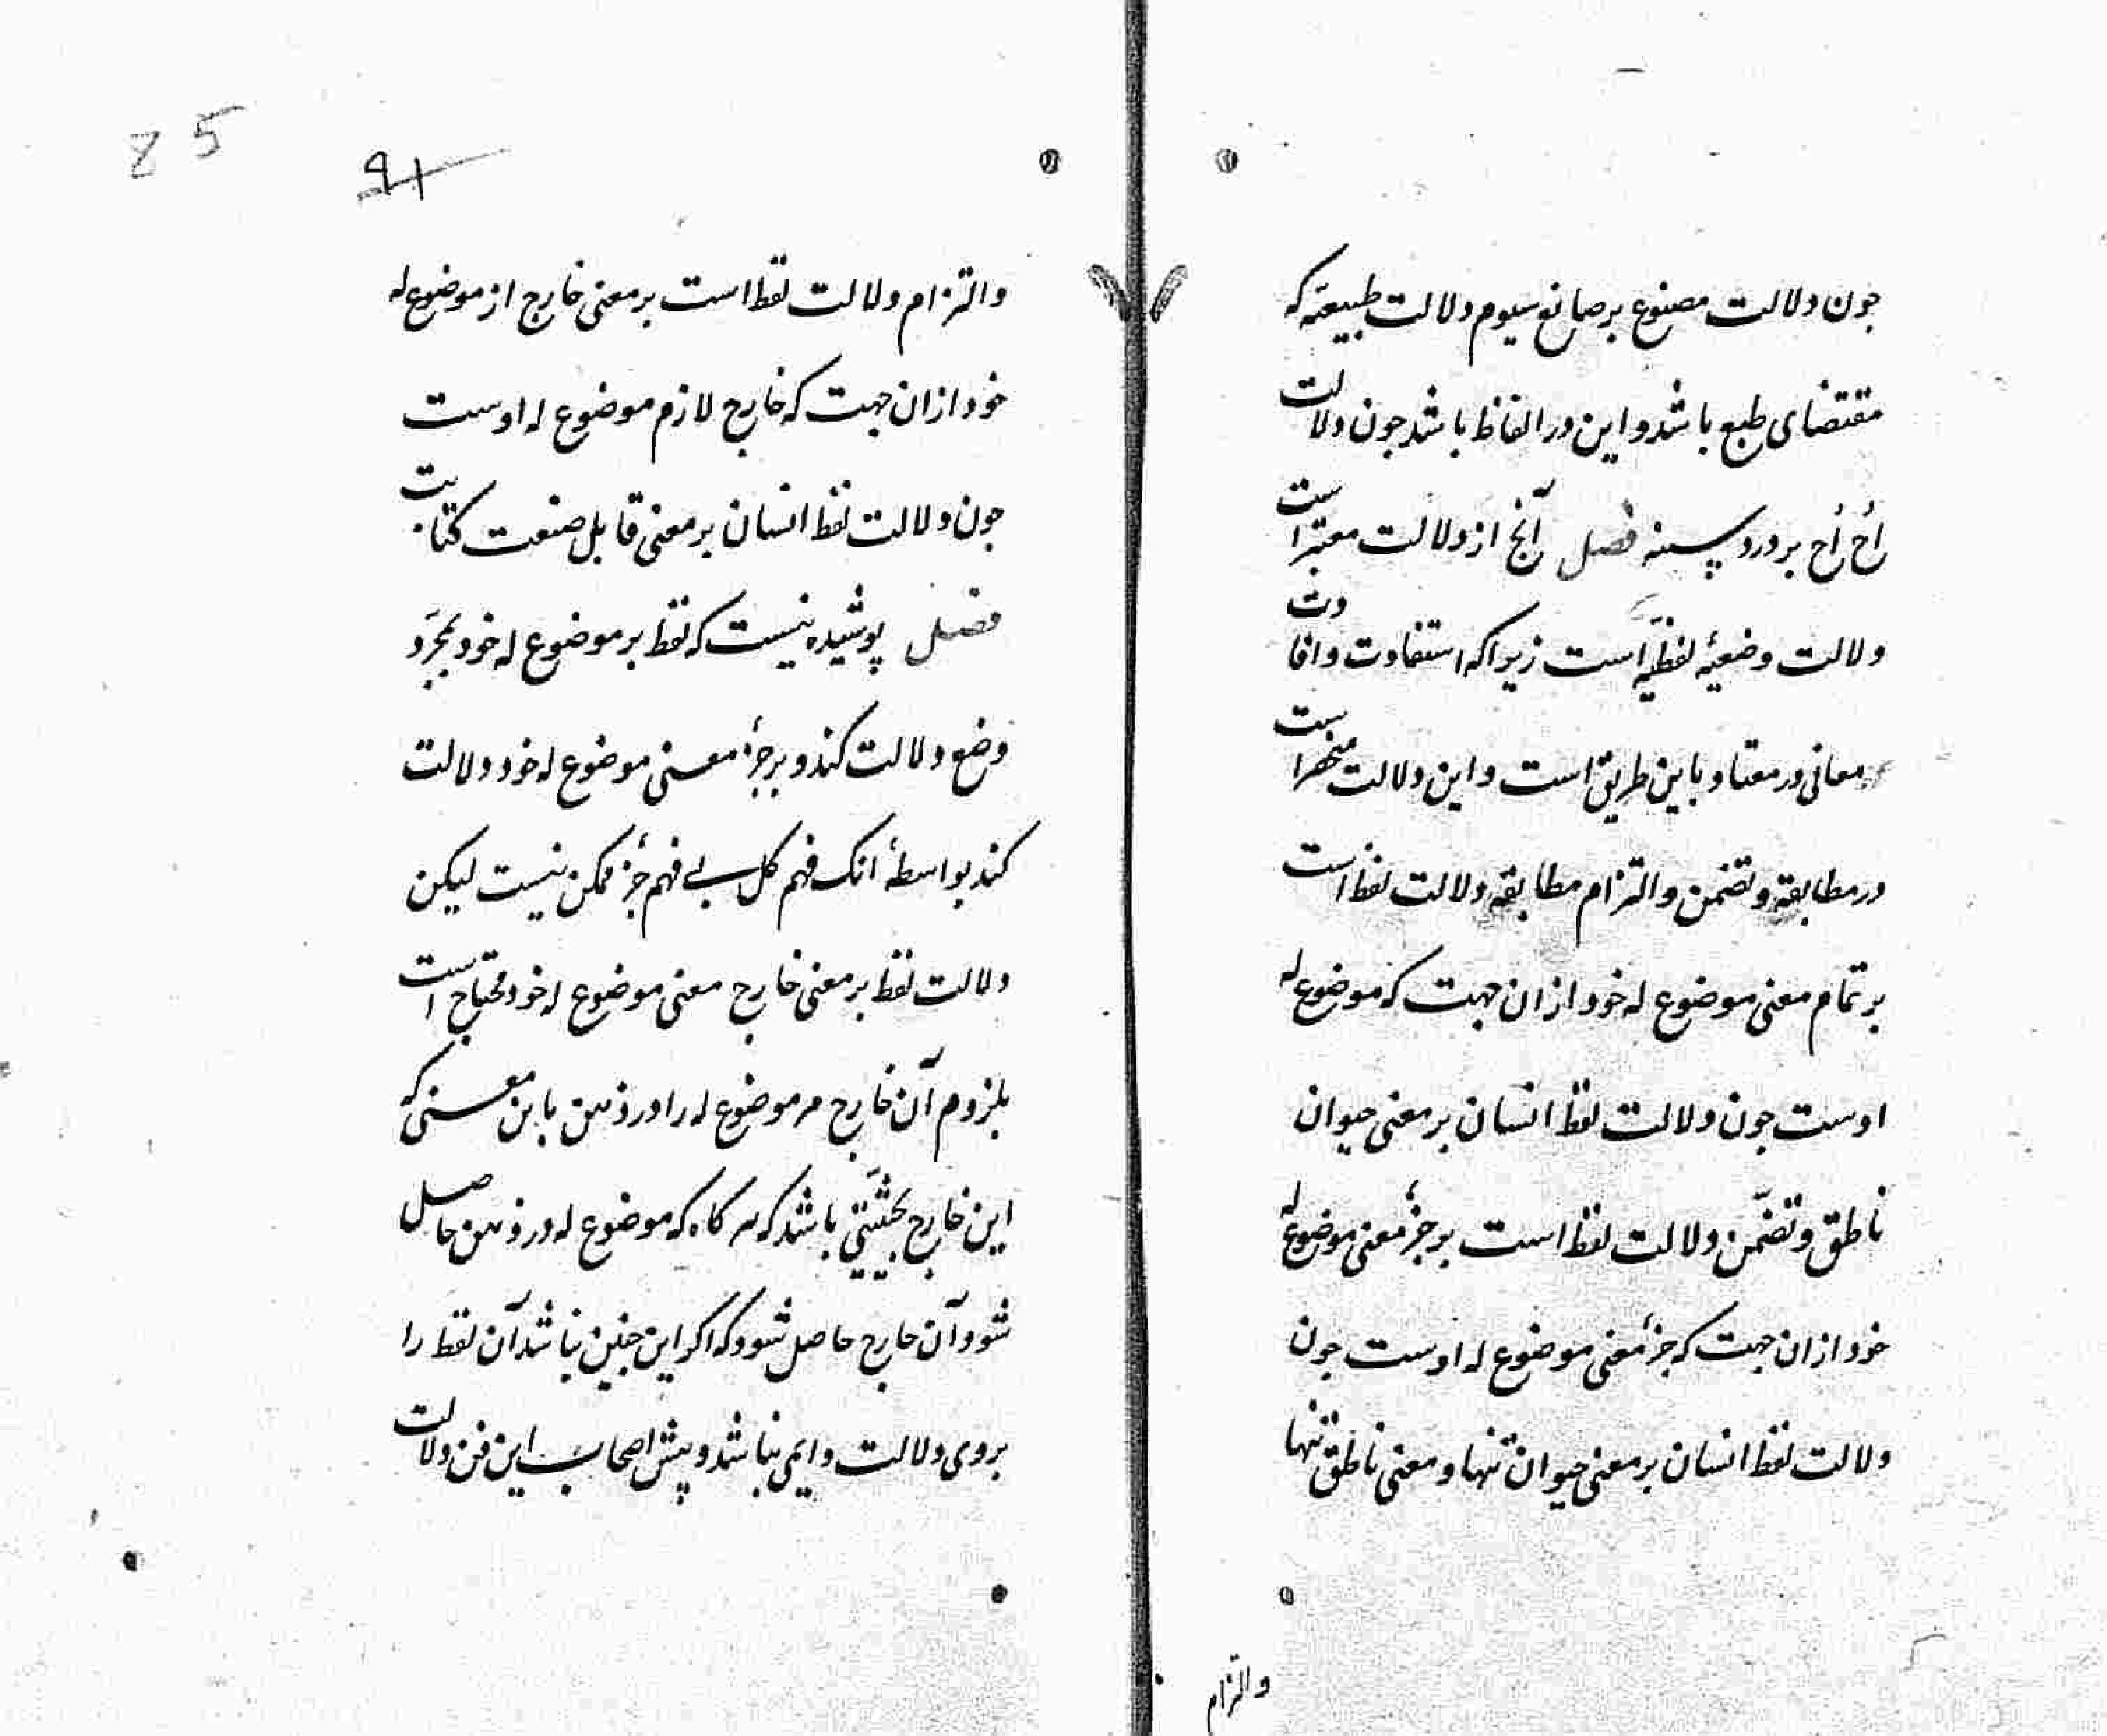 چون دلالت مصنوع بر صانع سیوم دلالت طبیعیّه که
مقتضای طبع باشد و این در الفاظ باشد چون دلالت
اُح اُح بر درد سینه فصل آنچ از دلالت معتبر است
دلالت وضعیهٔ لفظیّه است زیرا که استفادت و افادت
معانی در معتاد باین طریق است و این دلالت منحصر است
در مطابقه و تضمن و التزام مطابقه دلالت لفظ است
بر تمام معنی موضوع له خود از ان جهت که موضوع له
اوست چون دلالت لفظ انسان بر معنی حیوان
ناطق و تضمّن دلالت لفظ است بر جزءٔ معنی موضوع له
خود از ان جهت که جزءٔ معنی موضوع له اوست چون
دلالت لفظ انسان بر معنی حیوان تنها و معنی ناطق تنها
والتزام
85
91
والتزام دلالت لفظ است بر معنی خارج از موضوع له
خود از ان جهت که خارج لازم موضوع له اوست
چون دلالت لفظ انسان بر معنی قابل صنعت کتابت
فصل پوشیده نیست که لفظ بر موضوع له خود بمجرّد
وضع دلالت کند و بر جزءٔ معنی موضوع له خود دلالت
کند بواسطهٔ انک فهم کل بی فهم جزءٔ ممکن نیست لیکن
دلالت لفظ بر معنی خارج معنی موضوع له خود محتاج است
بلزوم آن خارج مر موضوع له را در ذهن باین معنی که
این خارج بحیثیّتی باشد که هر کاه که موضوع له در ذهن حاصل
شود آن خارج حاصل شود که اکر این چنین نباشد آن لفظ را
بر وی دلالت دایمی نباشد و پیش اصحاب این فن دلالت